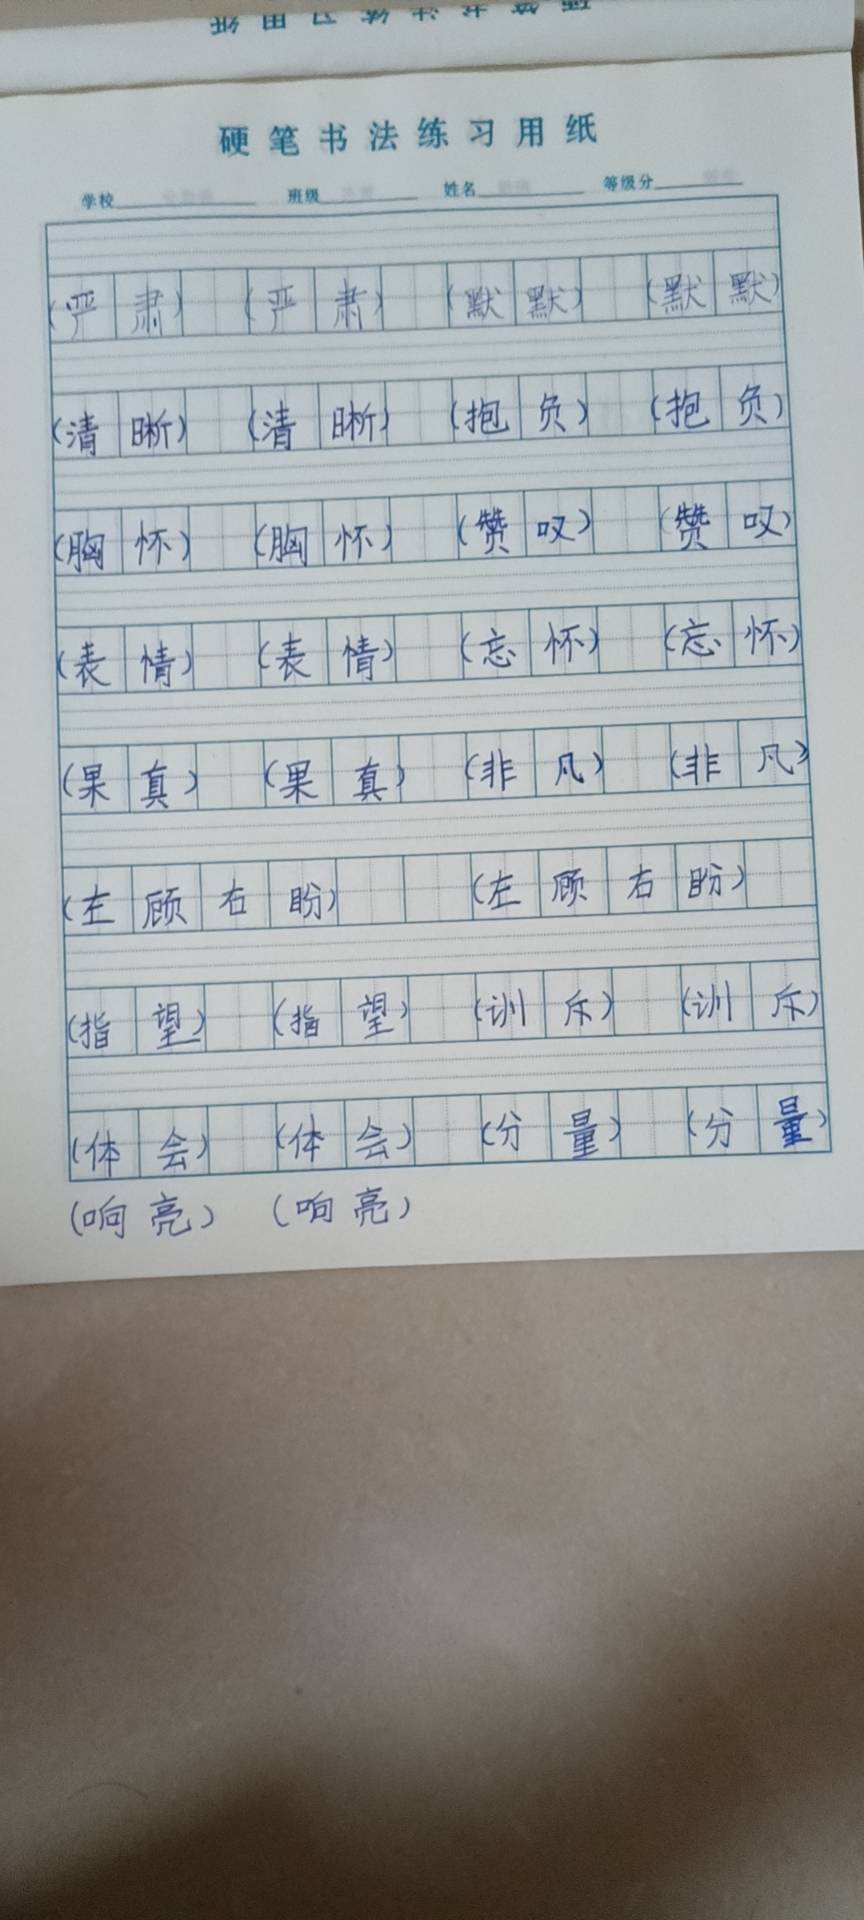 硬笔书法练习用纸
学校 班级 姓名 等级分
(严肃) (严肃) (默默) (默默)
(清晰) (清晰) (抱负) (抱负)
(胸怀) (胸怀) (赞叹) (赞叹)
(表情) (表情) (忘怀) (忘怀)
(果真) (果真) (非凡) (非凡)
(左顾右盼) (左顾右盼)
(指望) (指望) (训斥) (训斥)
(体会) (体会) (分量) (分量)
(响亮) (响亮)